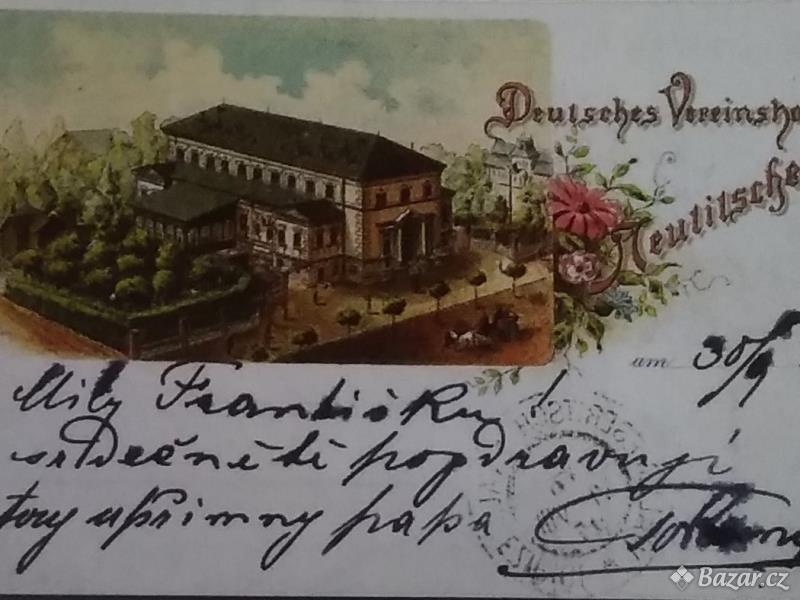 Deutsches Vereinsha
Neutitsche
am 30/9
Milý Františku!
srdečně tě pozdravuji
tvuj upřimny papa
Bazar.cz